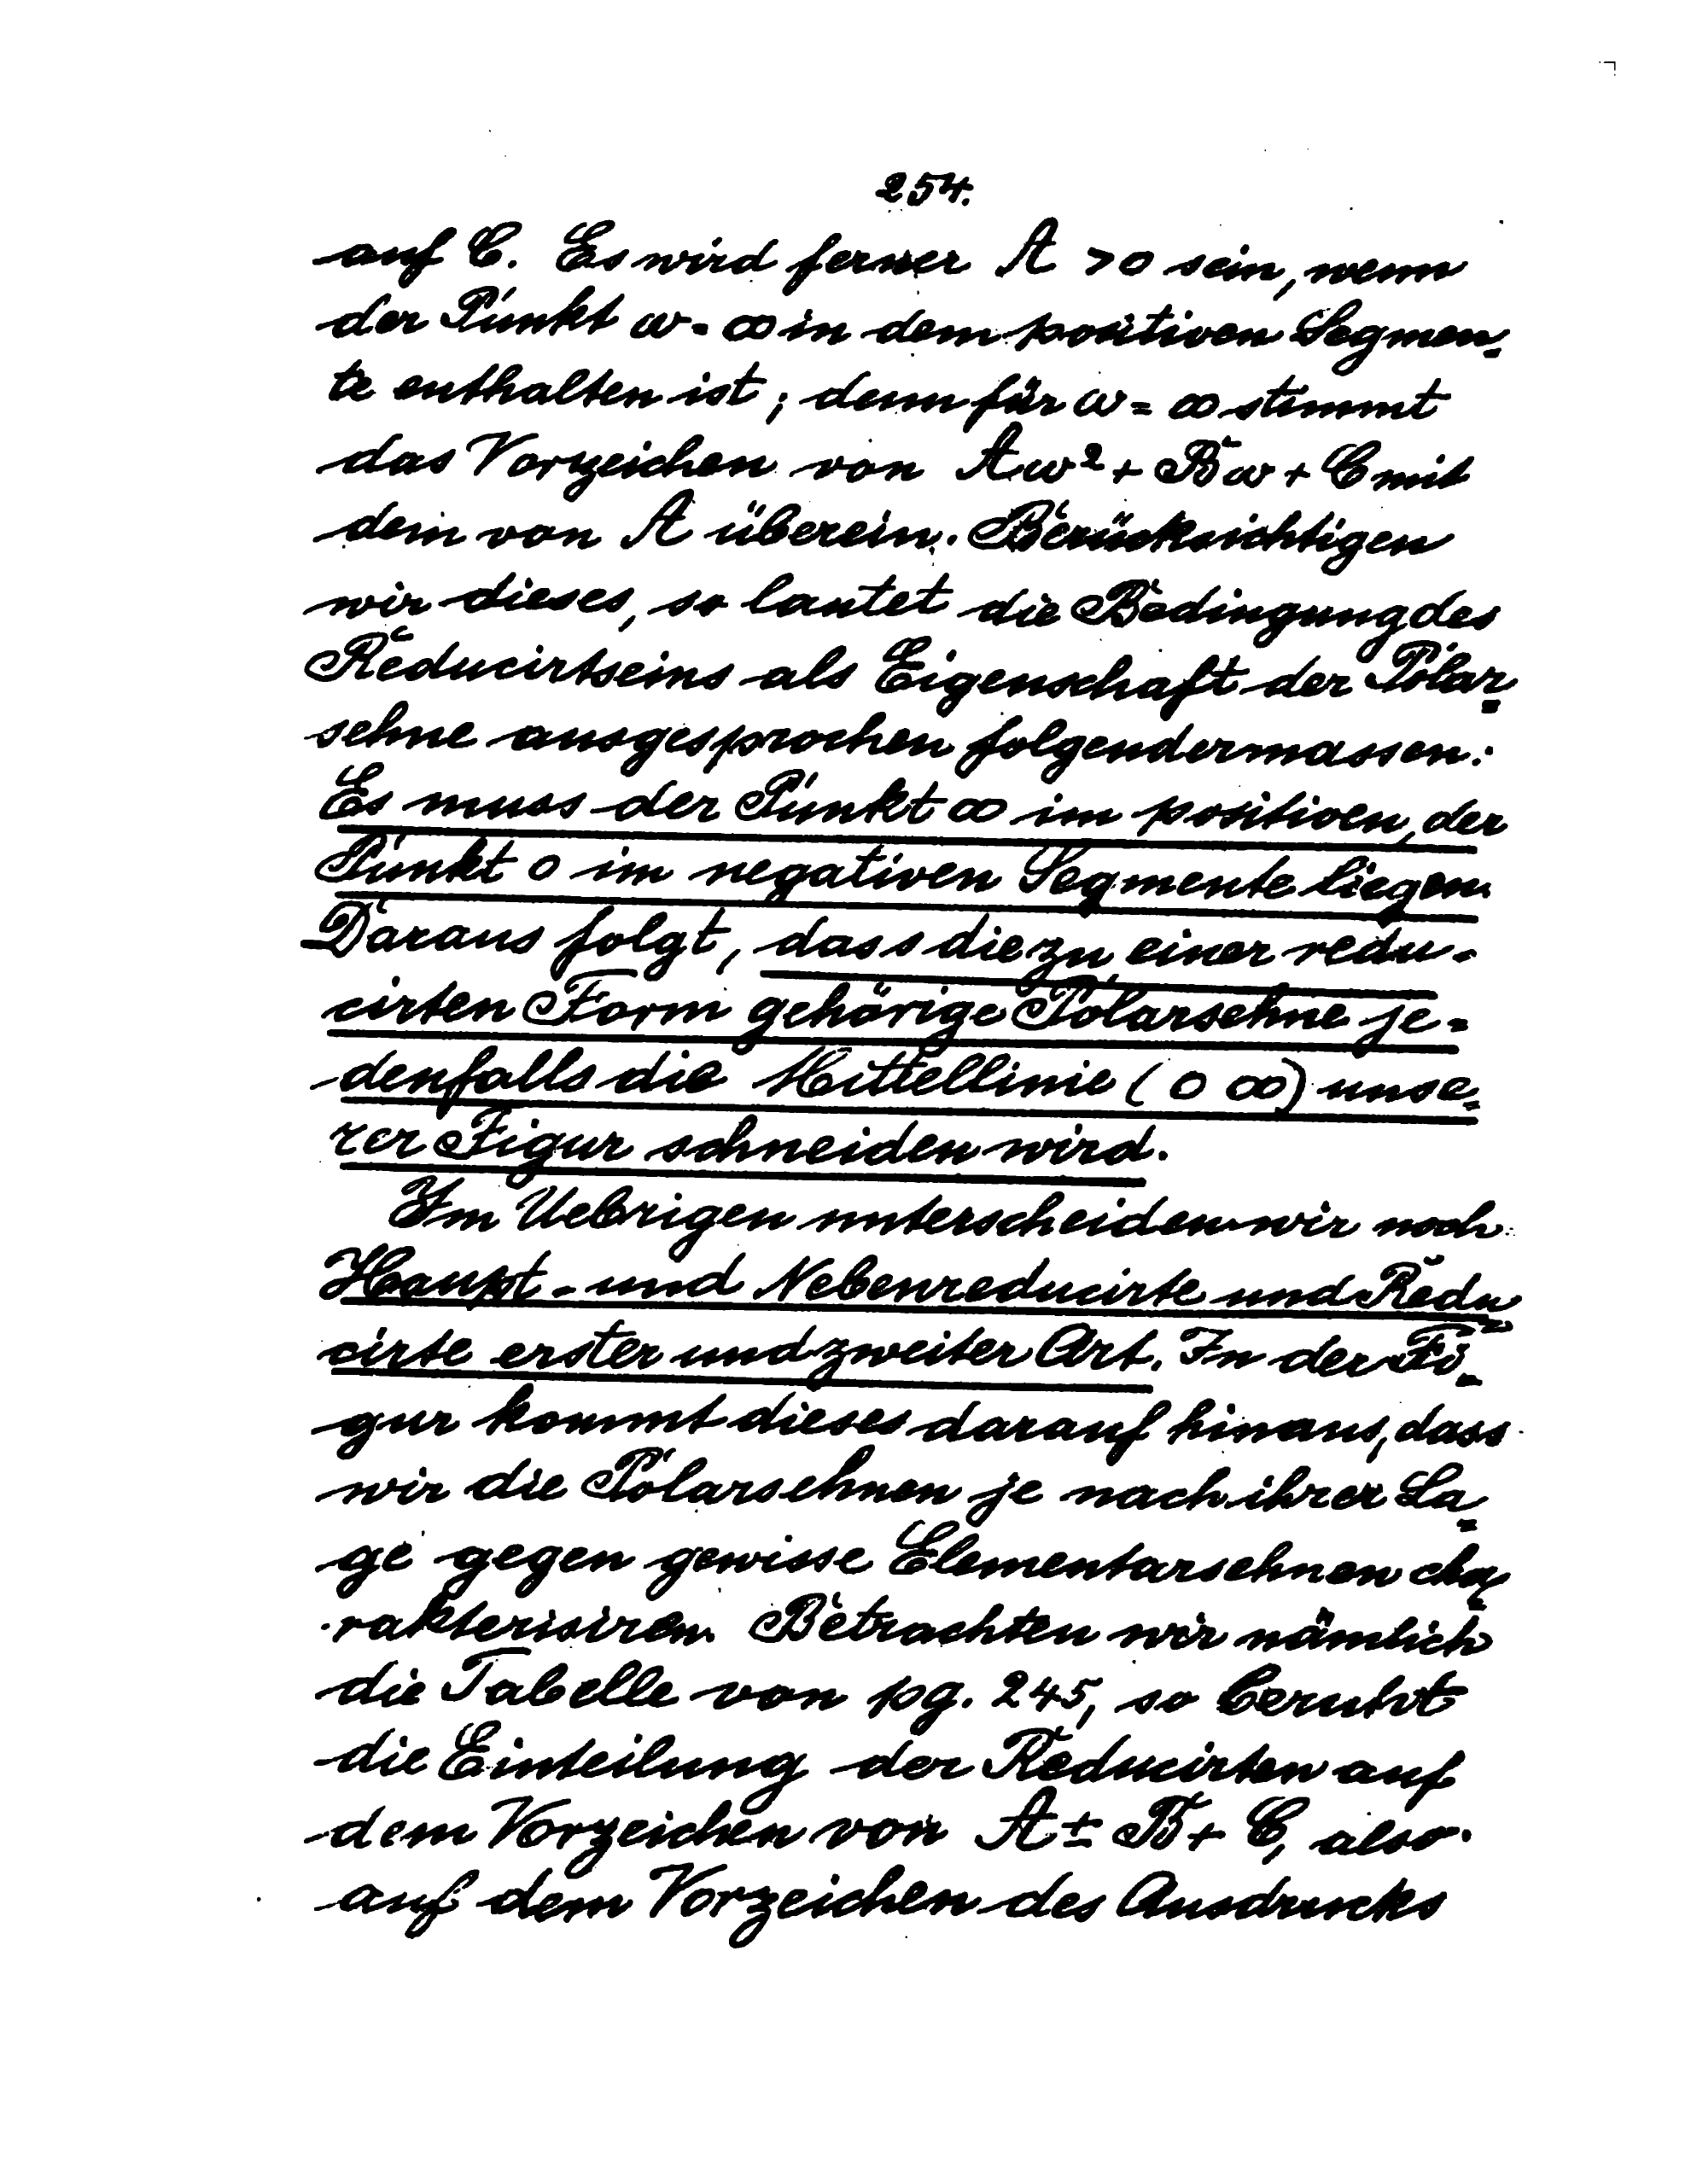 254.
auf C. Es wird ferner A > 0 sein, wenn
der Punkt ω = ∞ in dem positiven Segmen-
te enthalten ist; denn für ω = ∞ stimmt
das Vorzeichen von Aω² + Bω + C mit
dem von A überein. Berücksichtigen
wir dieses, so lautet die Bedingung des
Reducirtseins als Eigenschaft der Polar-
sehne ausgesprochen folgendermassen:
Es muss der Punkt ∞ im positiven, der
Punkt 0 im negativen Segmente liegen.
Daraus folgt, dass die zu einer redu-
cirten Form gehörige Polarsehne je-
denfalls die Mittellinie (0 ∞) unse-
rer Figur schneiden wird.
Im Uebrigen unterscheiden wir noch
Haupt- und Nebenreducirte und Redu-
cirte erster und zweiter Art. In der Fi-
gur kommt dieses darauf hinaus, dass
wir die Polarsehnen je nach ihrer La-
ge gegen gewisse Elementarsehnen cha-
rakterisiren. Betrachten wir nämlich
die Tabelle von pg. 245, so beruht
die Einteilung der Reducirten auf
dem Vorzeichen von A ± B + C, also
auf dem Vorzeichen des Ausdrucks